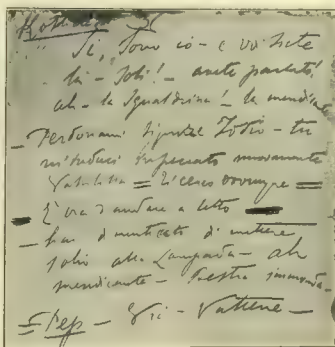 Si, sono io - e voi siete
là - soli! - avete parlato!
ah - la sgualdrina! - la mendica
- Perdonami Signore Iddio - tu
m'induci in peccato nuovamente
= ti cerco dovunque =
È ora d'andare a letto
- hai dimenticato di mettere
l'olio alla lampada - ah
mendicante - bestia immonda -
- Vattene -